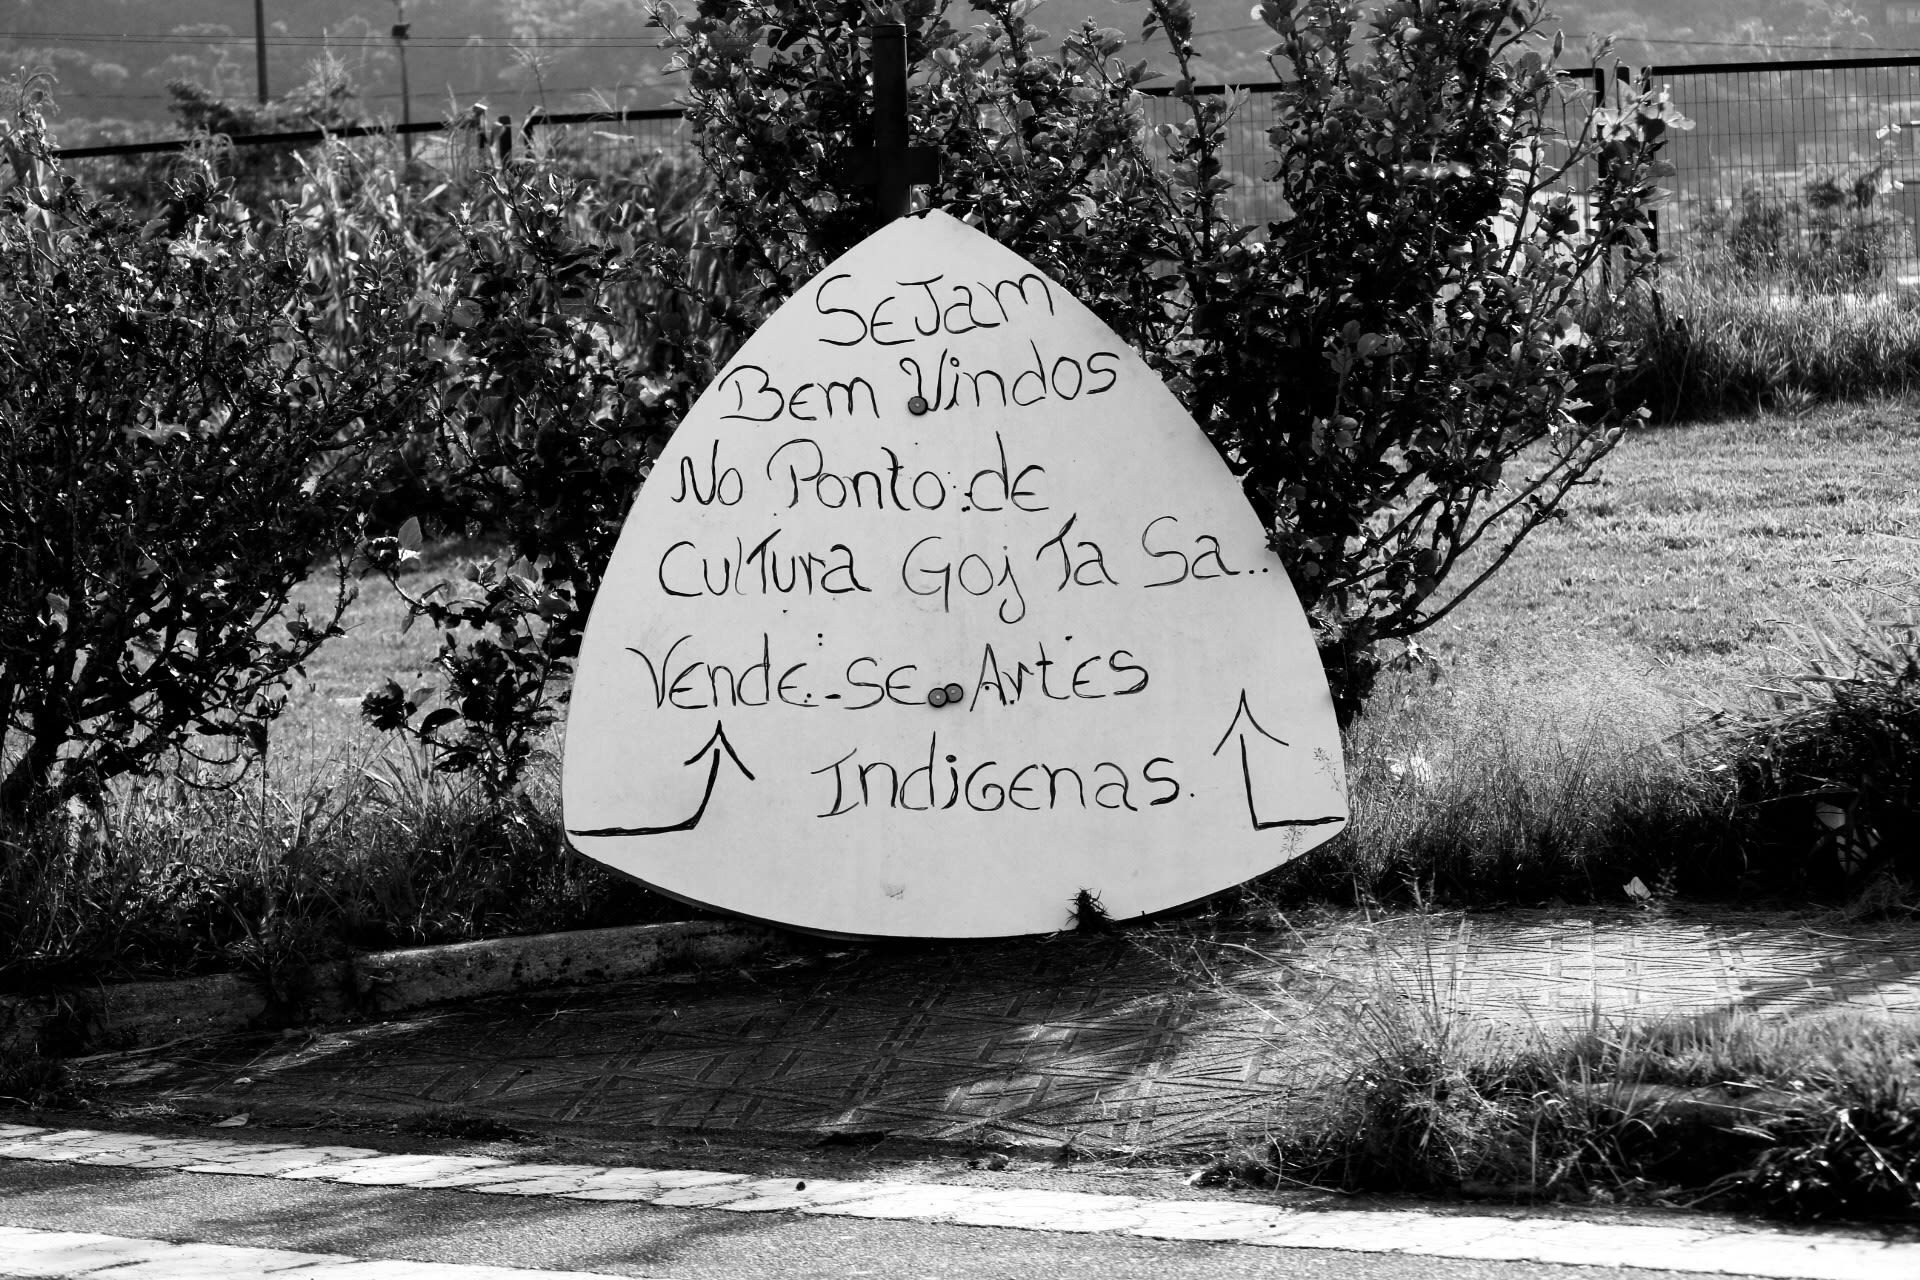 Sejam
Bem Vindos
No Ponto de
Cultura Goj Ta Sa..
Vende-se Artes
Indigenas.